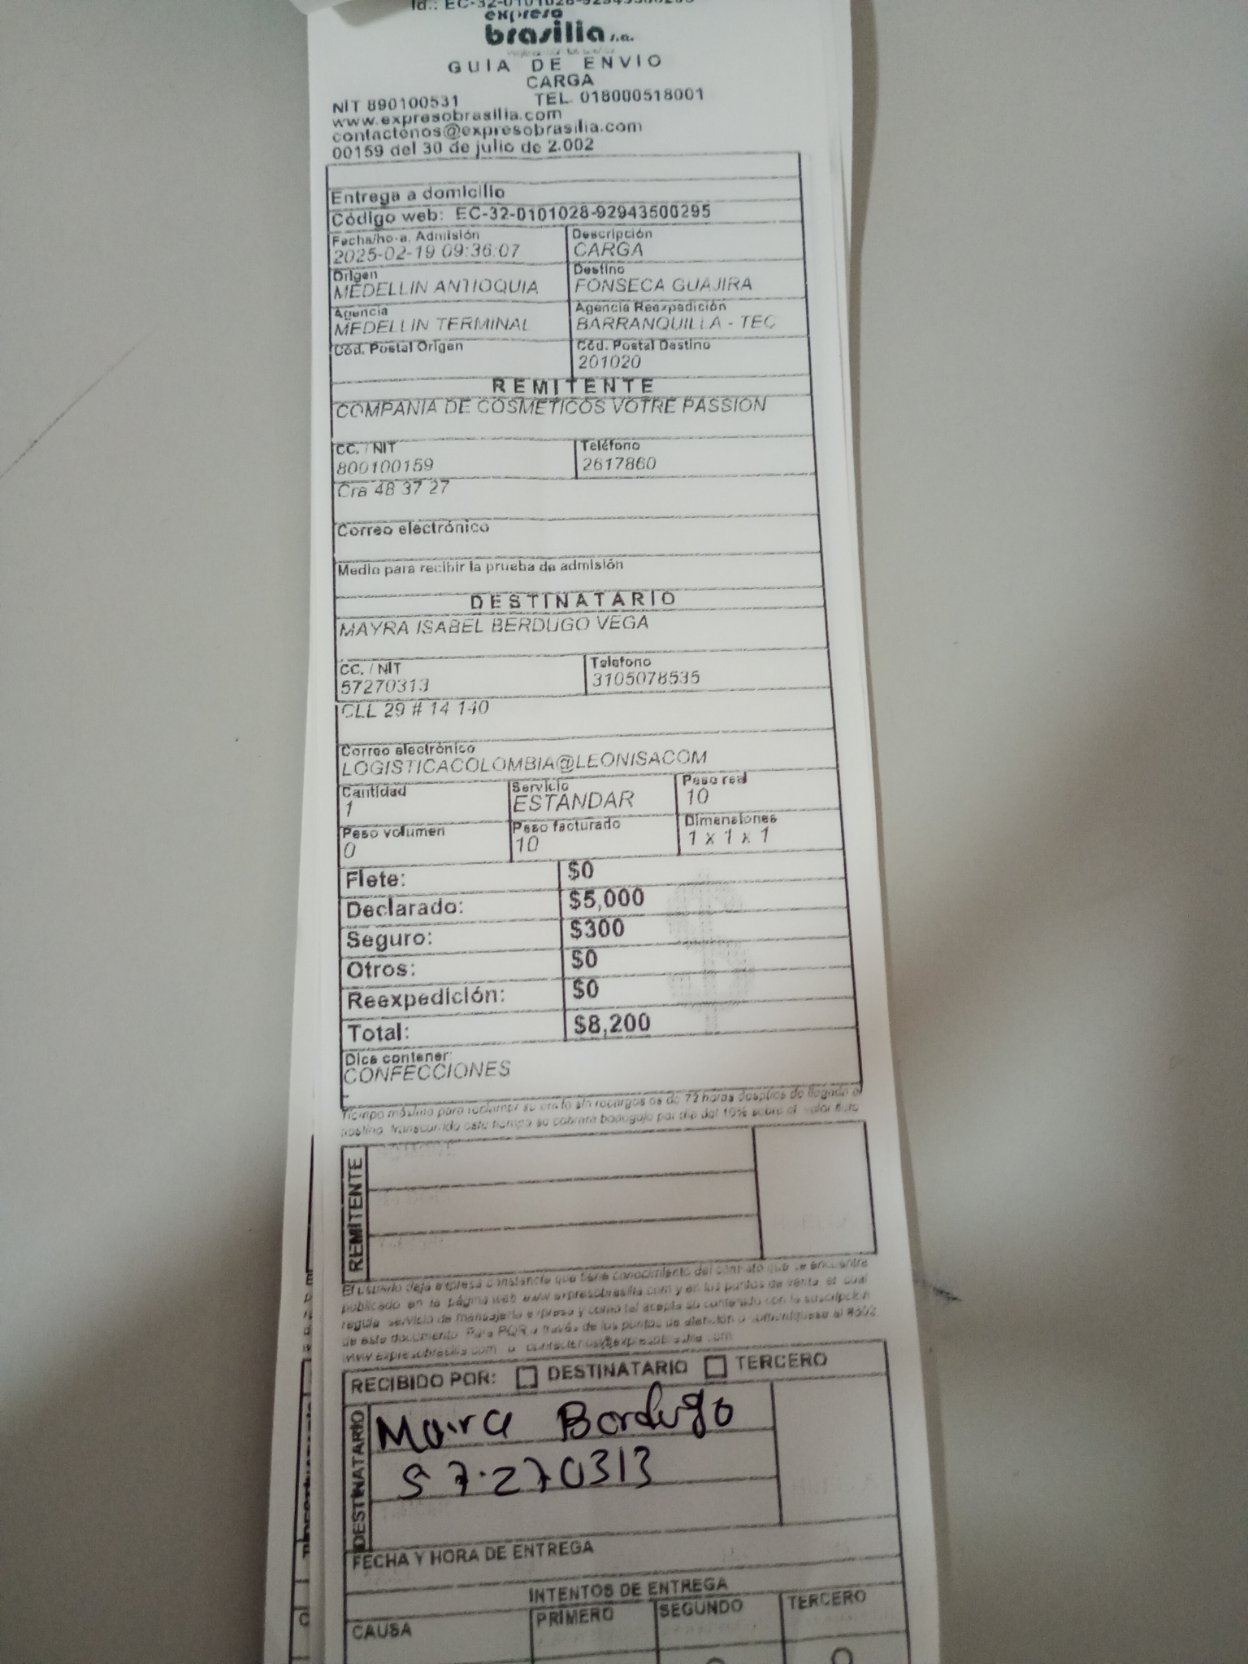 Id.: EC-32-0101028-92943500295
expreso
brasilia s.a.
GUIA DE ENVIO
CARGA
NIT 890100531 TEL. 018000518001
www.expresobrasilia.com
contactenos@expresobrasilia.com
00159 del 30 de julio de 2.002
Entrega a domicilio
Código web: EC-32-0101028-92943500295
Fecha/hora. Admisión Descripción
2025-02-19 09:36:07 CARGA
Origen Destino
MEDELLIN ANTIOQUIA FONSECA GUAJIRA
Agencia Agencia Reexpedición
MEDELLIN TERMINAL BARRANQUILLA - TEC
Cód. Postal Origen Cód. Postal Destino
201020
REMITENTE
COMPANIA DE COSMETICOS VOTRE PASSION
CC. / NIT Teléfono
800100159 2617860
Cra 48 37 27
Correo electrónico
Medio para recibir la prueba de admisión
DESTINATARIO
MAYRA ISABEL BERDUGO VEGA
CC. / NIT Telefono
57270313 3105078535
CLL 29 # 14 140
Correo electrónico
LOGISTICACOLOMBIA@LEONISACOM
Cantidad Servicio Peso real
1 ESTANDAR 10
Peso volumen Peso facturado Dimensiones
0 10 1 x 1 x 1
Flete: $0
Declarado: $5,000
Seguro: $300
Otros: $0
Reexpedición: $0
Total: $8,200
Dice contener:
CONFECCIONES
-
Tiempo máximo para reclamar su envío sin recargos es de 72 horas después de llegado a
destino, transcurrido este tiempo se cobrara bodegaje por dia del 10% sobre el valor flete
REMITENTE
El usuario deja expresa constancia que tiene conocimiento del contrato que se encuentra
publicado en la página web www.expresobrasilia.com y en los puntos de venta, el cual
regula servicio de mensajería expresa y como tal acepta su contenido con la suscripción
de este documento. Para PQR a través de los puntos de atención o comuníquese al #502.
www.expresobrasilia.com o contactenos@expresobrasilia.com
RECIBIDO POR: DESTINATARIO TERCERO
DESTINATARIO
Maira Bordugo
57.270313
FECHA Y HORA DE ENTREGA
INTENTOS DE ENTREGA
CAUSA PRIMERO SEGUNDO TERCERO